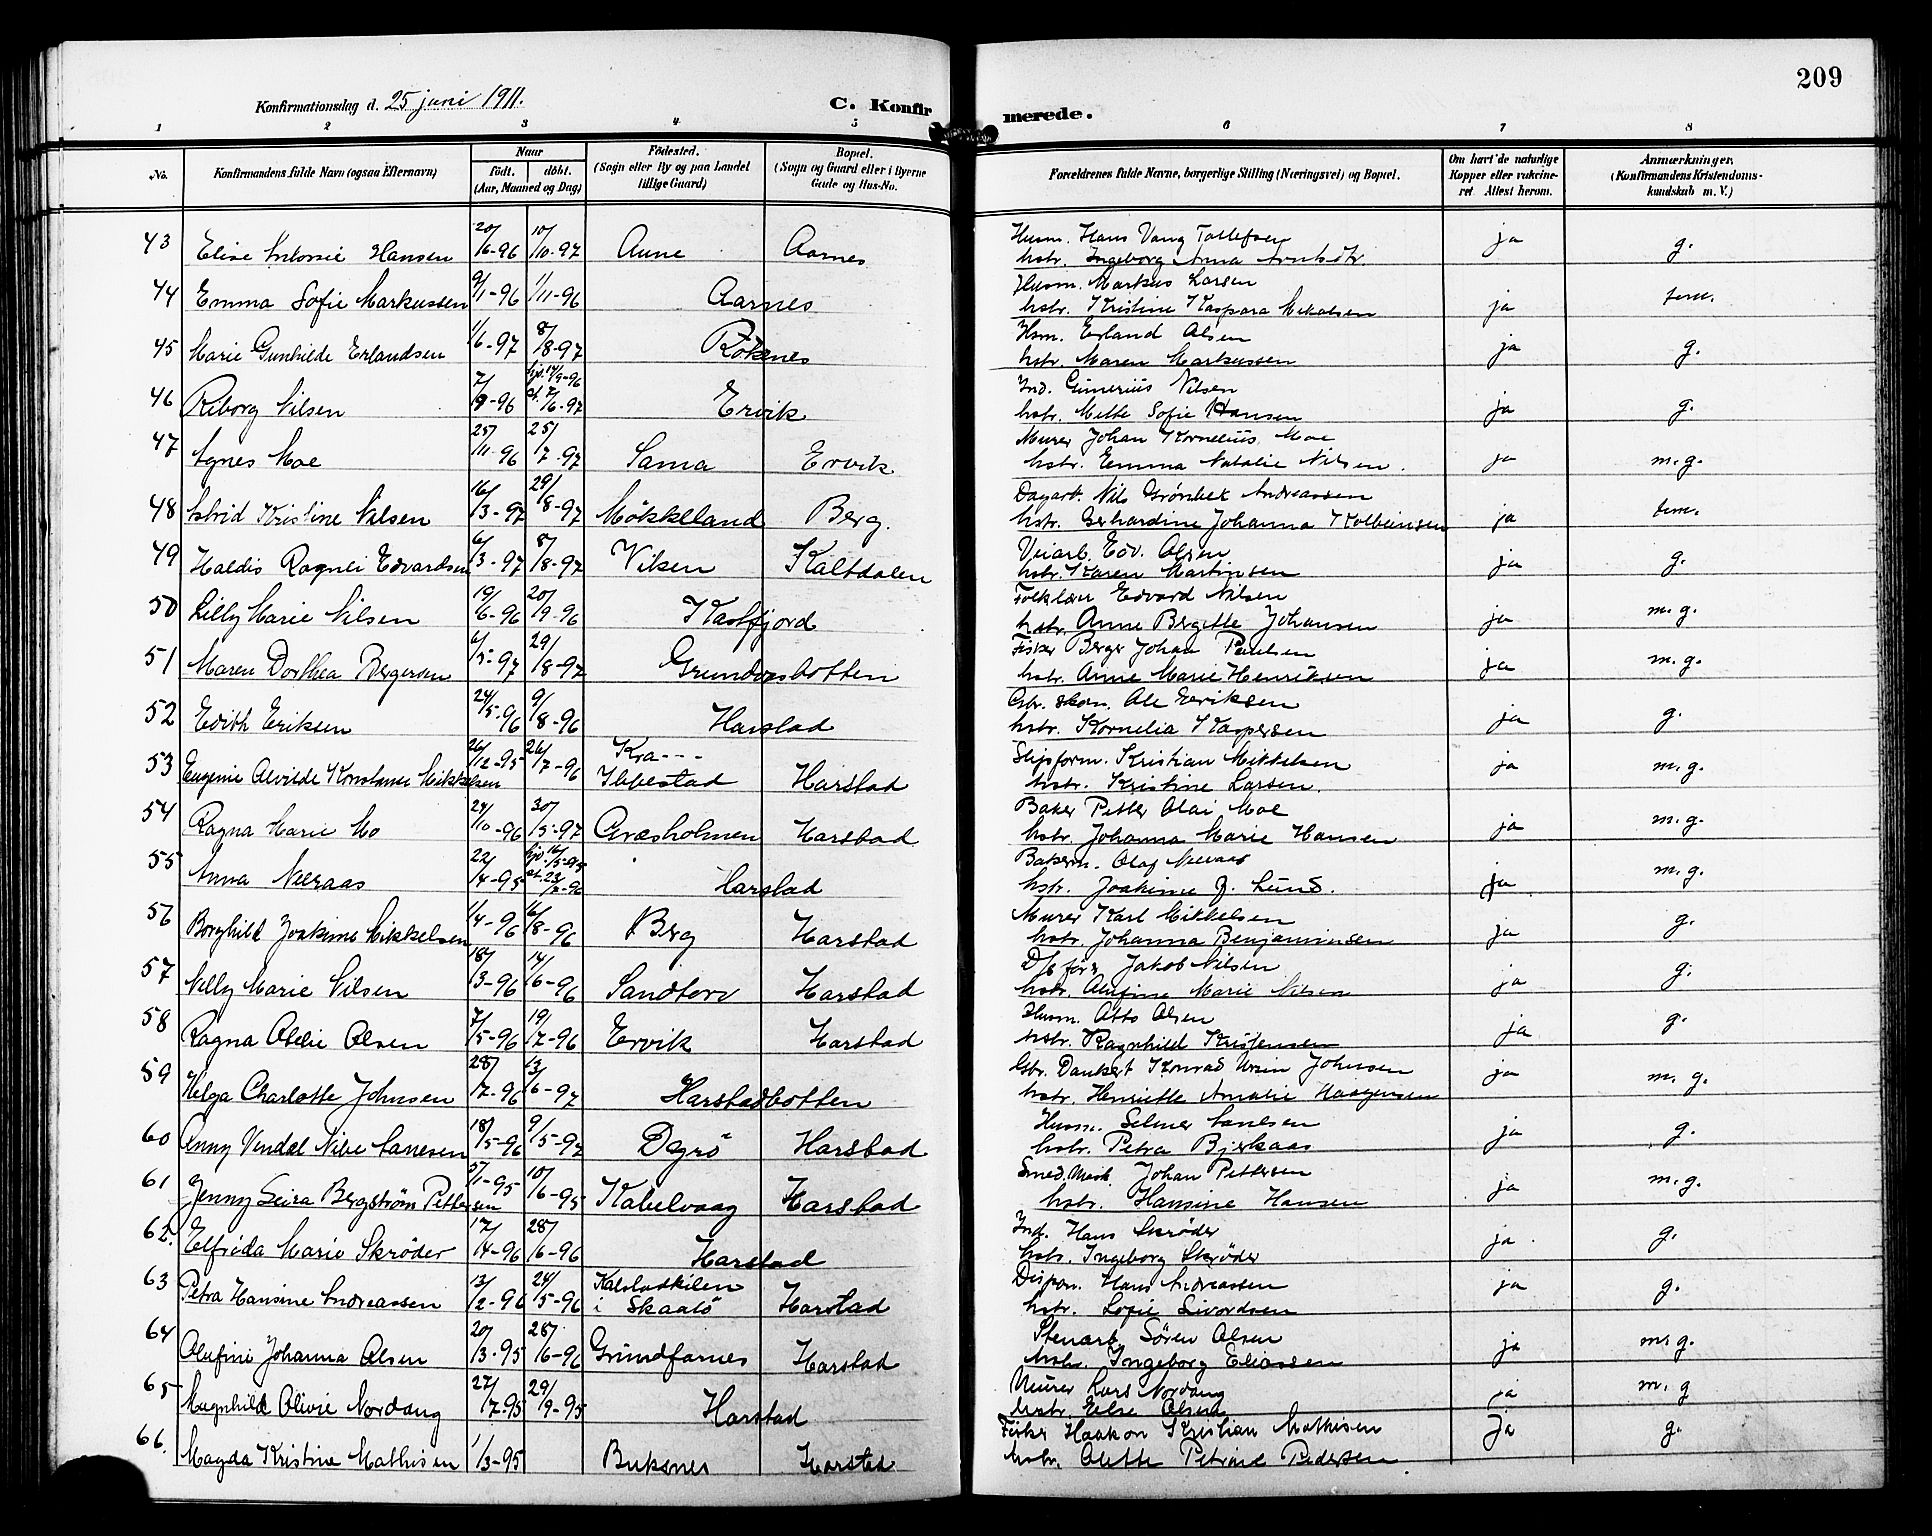 209
Konfirmationsdag d. 25 juni 1911.
C. Konfirmerede.
1 2 3 4 5 6 7 8
No.
Konfirmandens fulde Navn (ogsaa Efternavn)
Naar
födt. döbt.
(Aar, Maaned og Dag)
Födested.
(Sogn eller By og paa Landet
tillige Gaard)
Bopæl.
(Sogn og Gaard eller i Byerne
Gade og Hus-No.
Forældrenes fulde Navne, borgerlige Stilling (Næringsvei) og Bopæl.
Om havt de naturlige
Kopper eller vakcine-
ret Attest herom.
Anmærkninger.
(Konfirmandens Kristendoms-
kundskab m. V.)
43 Elise Antonie Hansen 20/6-96 10/10-97 Aune Aarnes Husm. Hans Vang Tollefsen ja g.
hstr. Ingeborg Anna Arntsdtr.
44 Emma Sofie Markussen 9/1-96 1/11-96 Aarnes Husm. Markus Larsen ja tem.
hstr. Kristine Kaspara Mikalsen
45 Marie Gunhilde Erlandsen 1/6-97 8/8-97 Röknes Hsm. Erland Olsen ja g.
hstr. Maren Markussen
46 Riborg Nilsen 7/9-96 hjd. 14/9-96 st. 7/6-97 Ervik Ind. Gunerius Nilsen ja g.
hstr. Mette Sofie Hansen
47 Agnes Moe 25/11-96 25/7-97 Sama Ervik Murer Johan Kornelius Moe ja m.g.
hstr. Emma Natalie Nilsen.
48 Astrid Kristine Nilsen 16/3-97 29/8-97 Mökkelland Berg. Dagarb. Nils Grönbek Andreassen ja tem.
hstr. Gerhardine Johanna Kolbeinsen
49 Haldis Ragnli Edvardsen 6/3-97 8/8-97 Viken Kaltdalen Veiarb. Edv. Olsen ja g.
hstr. Karen Martinsen
50 Lilly Marie Nilsen 19/6-96 20/9-96 Kasfjord Edvard Nilsen ja m.g.
hstr. Anne Bergitte Johansen
51 Maren Dorthea Bergersen 6/5-97 29/8-97 Grundvasbotten Fisker Berger Johan Paulsen ja m.g.
hstr. Anne Marie Henriksen
52 Edith Eriksen 24/5-96 9/8-96 Harstad Gbr. skom. Ole Eeriksen ja g.
hstr. Kornelia Kaspersen
53 Eugenie Alvilde Konstanse Mikkelsen 26/12-95 26/7-96 Kra---
Ibbestad Harstad Slipsform. Kristian Mikkelsen ja m.g.
hstr. Kristine Larsen.
54 Ragna Marie Mo 24/10-96 30/5-97 Græsholmen Harstad Baker Petter Olai Moe ja m.g.
hstr. Johanna Marie Hansen
55 Anna Nilraas 22/4-95 hjd. 16/5-95 Harstad Bakerm. Olaf ja m.g.
hstr. Joakime J. Lund.
56 Borghild Joakime Mikkelsen 1/4-96 16/8-96 Berg Harstad Murer Karl Mikkelsen ja g.
hstr. Johanna Benjaminsen
57 Nelly Marie Nilsen 18/3-96 14/6-96 Sandtorv Harstad D/s förer Jakob Nilsen ja g.
hstr. Olufine Marie Nilsen
58 Ragna Otelie Olsen 7/5-96 19/7-96 Ervik Harstad Husm. Otto Olsen ja g.
hstr. Ragnhild Kristensen
59 Helga Charlotte Johnsen 28/7-96 13/6-97 Harstadbotten Gbr. Dankert Konrad Ursin Johnsen ja m.g.
hstr. Henriette Amalie Haagensen
60 Anny Vendel Nibe Lanesen 18/5-96 9/5-97 Dyrö Harstad Husm. Selmer Lanesen ja g.
hstr. Petra Bjerkaas
61 Jenny Seira Bergström Pettersen 5/1-95 10/6-95 Kabelvaag Harstad Smed, Mask. Johan Pettersen ja m.g.
hstr. Hansine Hansen
62. Elfrida Marie Skröder 17/4-96 28/6-96 Harstad Ind. Hans Skröder ja. g.
hstr. Ingeborg Skröder
63 Petra Hansine Andreassen 13/2-96 24/5-96 Kalstadkilen
i Skaatö Harstad Dispon. Hans Andreassen ja g.
hstr. Sofie Sivordsen
64 Olufine Johanna Olsen 20/3-95 28/6-96 Grundfarnes Harstad Stenarb. Sören Olsen ja m.g.
hstr. Ingeborg Eliassen
65 Magnhild Olivie Nordang 27/7-95 29/9-95 Harstad Murer Lars Nordang ja m.g
hstr. Else Olsen
66. Magda Kristine Mathisen 1/3-95 Buksnes Harstad Fisker Haakon Kristian Mathisen ja g.
hstr. Olette Petrine Pedersen